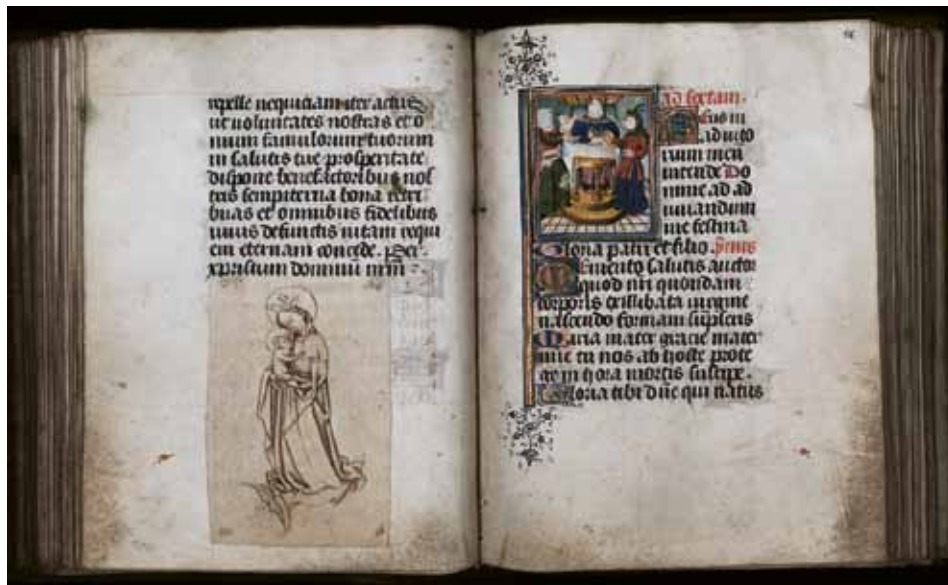 repelle nequiciam iter actus
ut voluntates nostras et o
mnium famulorum tuorum
in salutis tue prosperitate
dispone benefactoribus nos
tris sempiterna bona retri
buas et omnibus fidelibus
vivis defunctis vitam requi
em eternam concede. Per
xpristum dominū nrm
Ad sextam.
Deus in
adiuto
rium meu
intende Do
mine ad ad
iuvandum
me festina
Gloria patri et filio.
Memento salutis auctor
quod nri quondam
corporis ex illibata virgine
nascendo formam sumpseris
Maria mater gracie mater
mie tu nos ab hoste prote
ge in hora mortis suscipe.
Gloria tibi dne qui natus